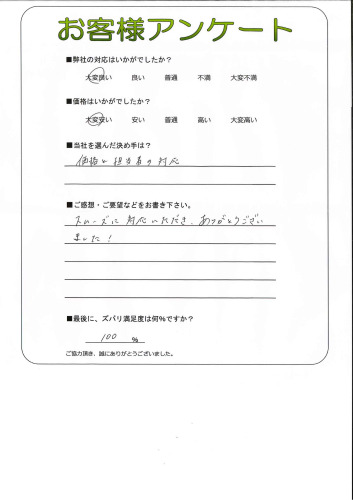 お客様アンケート
■弊社の対応はいかがでしたか？
大変良い 良い 普通 不満 大変不満
■価格はいかがでしたか？
大変安い 安い 普通 高い 大変高い
■当社を選んだ決め手は？
価格と担当者の対応
■ご感想・ご要望などをお書き下さい。
スムーズに対応いただき、ありがとうござい
ました！
■最後に、ズバリ満足度は何%ですか？
100 %
ご協力頂き、誠にありがとうございました。